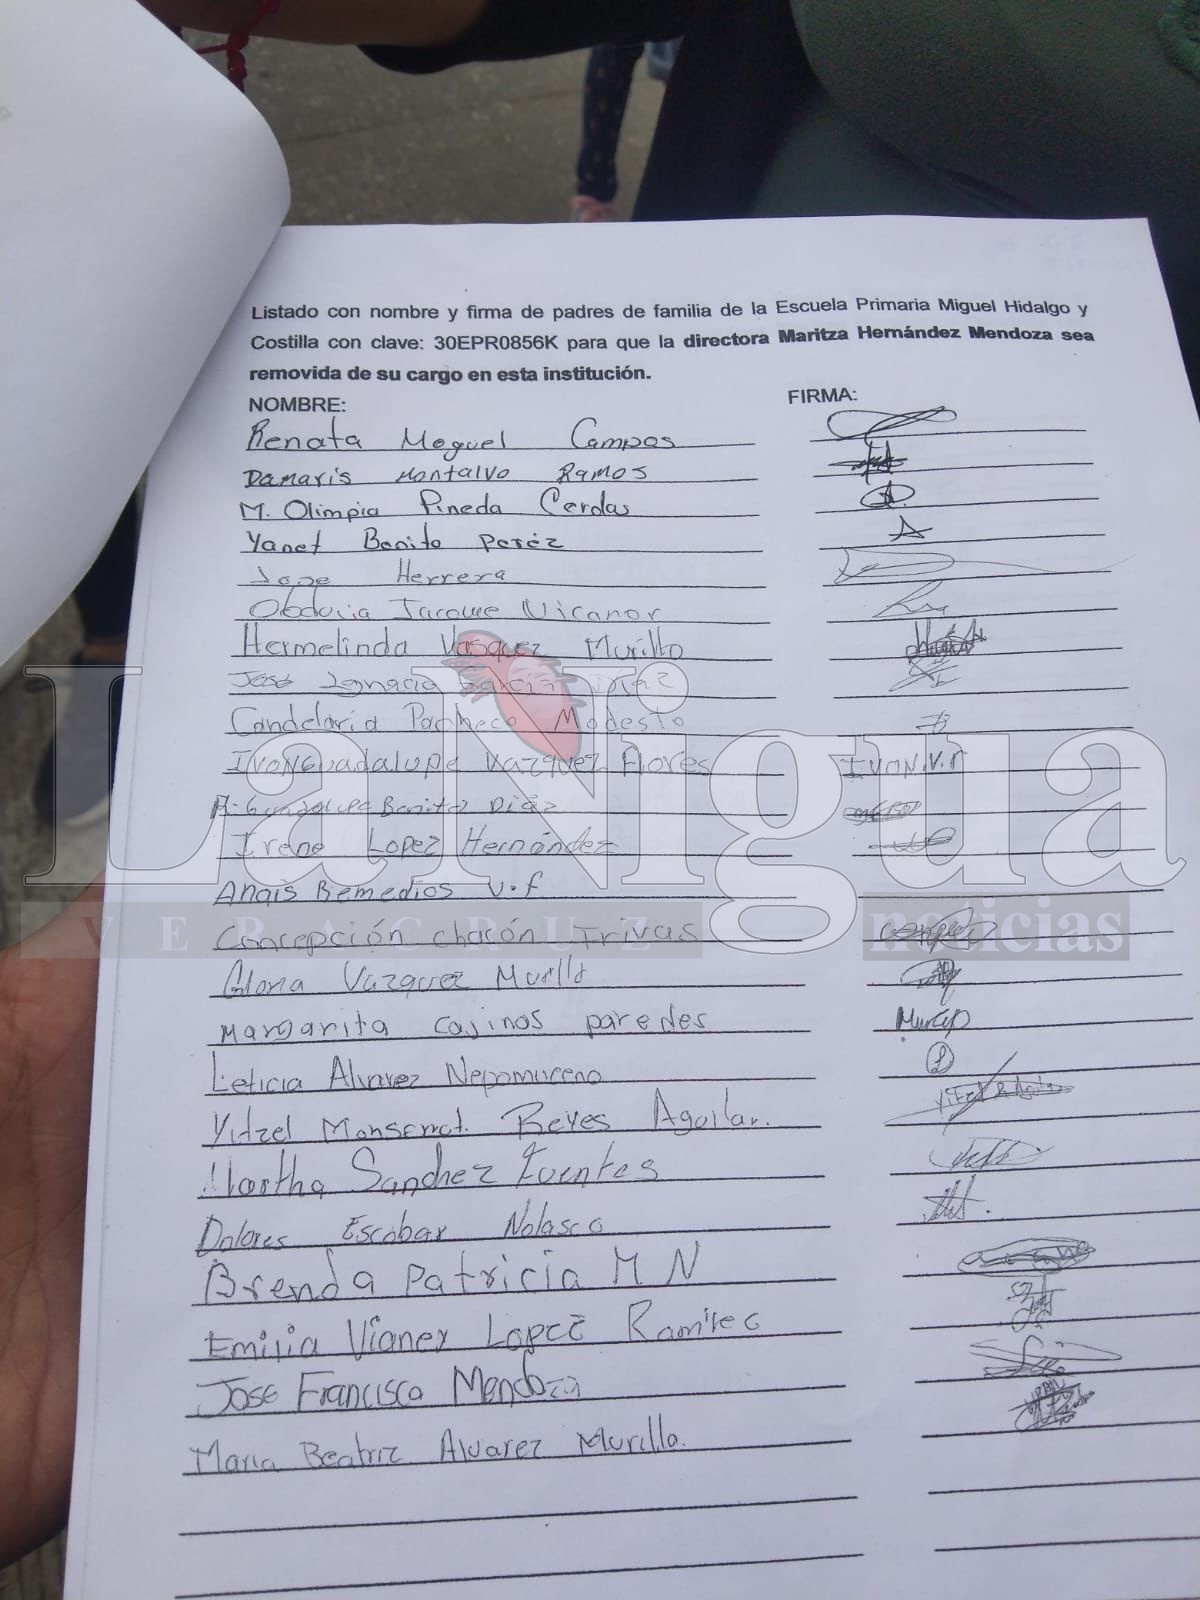 Listado con nombre y firma de padres de familia de la Escuela Primaria Miguel Hidalgo y
Costilla con clave: 30EPR0856K para que la directora Maritza Hernández Mendoza sea
removida de su cargo en esta institución.
NOMBRE: FIRMA:
Renata Moguel Campos
Damaris Montalvo Ramos
M. Olimpia Pineda Cerdas
Yanet Benito peréz
Jose Herrera
Obdulia Jacome Nicanor
Hermelinda Vasquez Murillo
José Ignacio Garcia
Candelaria Pacheco Modesto
Ivon Guadalupe Vazquez Flores IVON.V.F
LaNigua
Guadalupe Benito Diáz
Irene Lopez Hernández
Anais Remedios V.f
VERACRUZ noticias
Concepción chacón Trivas
Gloria Vazquez Murillo
Margarita Cajinos paredes
Leticia Alvarez Nepomuceno
Yitzel Monserrat. Reyes Aguilar.
Martha Sanchez Fuentes
Dolores Escobar Nolasco
Brenda Patricia M N
Emilia Vianey Lopez Ramirec
Jose Francisco Mendoza
Maria Beatriz Alvarez Murillo.